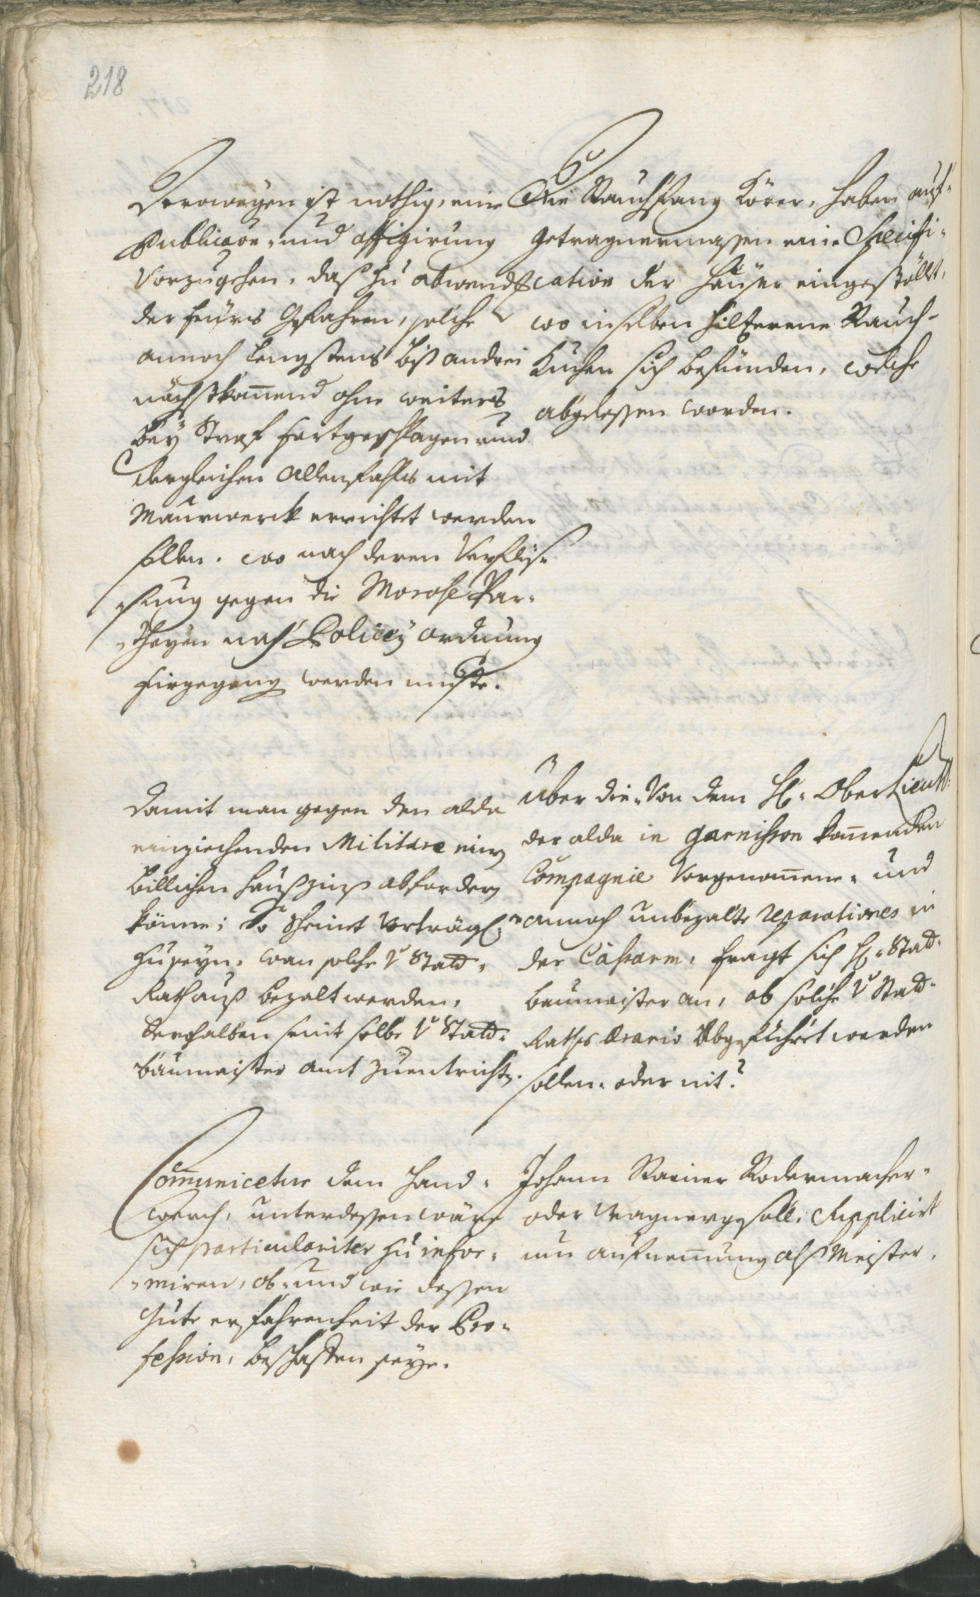 218
Derowegen ist nothig, eine
Publicaon- und affigirung
vorzugehen, daß zu abwend
der feürs Gefahren, solche
annoch lengstens biß andrei
nächstkom̄end ohne weiters
bey Straf fortgeschlagen und
dergleichen allenfahls mit
Maurwerck errichtet werden
sollen. wo nach deren Verflüs-
sung gegen die Morose Par-
theyen nach Policey ordnung
firgegang werden müste.
Die Rauchfang Körer, haben auf-
getragnermassen eine Specifi-
cation der Häuser eingestöllt,
wo inselben hiltzerene Rauch-
Kuchen sich befünden, welche
abgelessen worden.
Damit man gegen den alda
einziechenden Militare einen
billichen Haußzinß abfordern
könne; So scheinet verträgl:
zu seyn, wan solche v Statt-
Rathauß bezalt werden,
derohalben seint selbe v Statt-
baumeister amt zuentricht.
Über die von dem H: Ober Lieutt:
der alda in Garnison kom̄enden
Compagnie vorgenom̄ene- und
annoch unbezalte reparationes in
der Casarm, fragt sich H: Statt-
baumeister an, ob solche v Statt-
Raths Ærario abgeführet werden
sollen, oder nit?
Com̄unicetur dem Hand-
werch, unterdessen wäre
sich particulariter zu infor-
miren, ob- und wie dessen
gute erfahrenheit der Pro-
fession, beschaffen seye.
Johann Rainer Rodermacher-
oder Wagnergsöll, Supplicirt
um aufnem̄ung alß Meister.